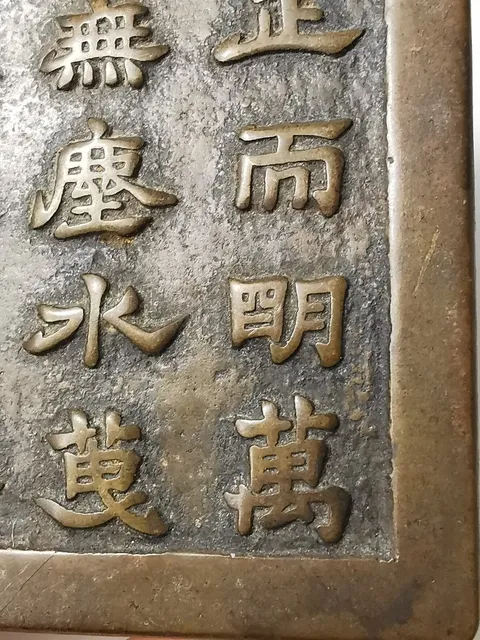 正而明萬
無塵水